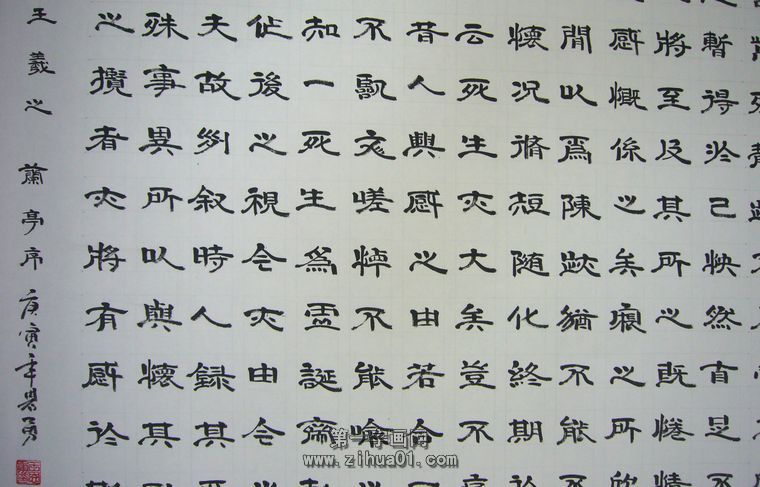 暫得於己怏然自足不
將至及其所之既惓情
感慨係之矣向之所欣
間以為陳跡猶不能不
懷況脩短随化終期於
云死生亦大矣豈不
昔人興感之由若合
不臨文嗟悼不能喻
知一死生為虛誕齊
作後之視今亦由今
夫故列叙時人録其
殊事異所以興懷其
之攬者亦將有感於
王羲之 蘭亭序 庚寅年 勇
第一字画网
www.zihua01.com